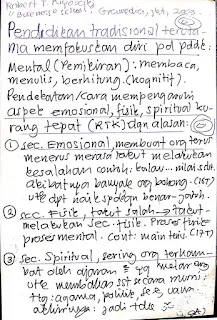 Robert T. Kiyosaki
"Business school", Gramedia, Jkt, 200
Pendidikan tradisional teruta-
ma memfokuskan diri pd pddk.
Mental (Pemikiran): membaca,
menulis, berhitung (kognitif).
Pendekatan/cara mempengaruhi
aspek emosional, fisik, spiritual ku-
rang tepat (KTK) dgn alasan:
① sec. Emosional, membuat org terus
menerus merasa takut melakukan
kesalahan contoh: kalau... nilai sdkt
akibatnya banyak org bohong (167)
utk dpt naik
② sec. Fisik, takut salah → takut
melakukan sec. fisik. Proses fisik
proses mental. Cont: main tenis (171)
③ sec. Spiritual, sering org
oleh ajaran yg
utk membahas sst secara
ttg: agama, politik, sex, uang
akhirnya: jadi tdk